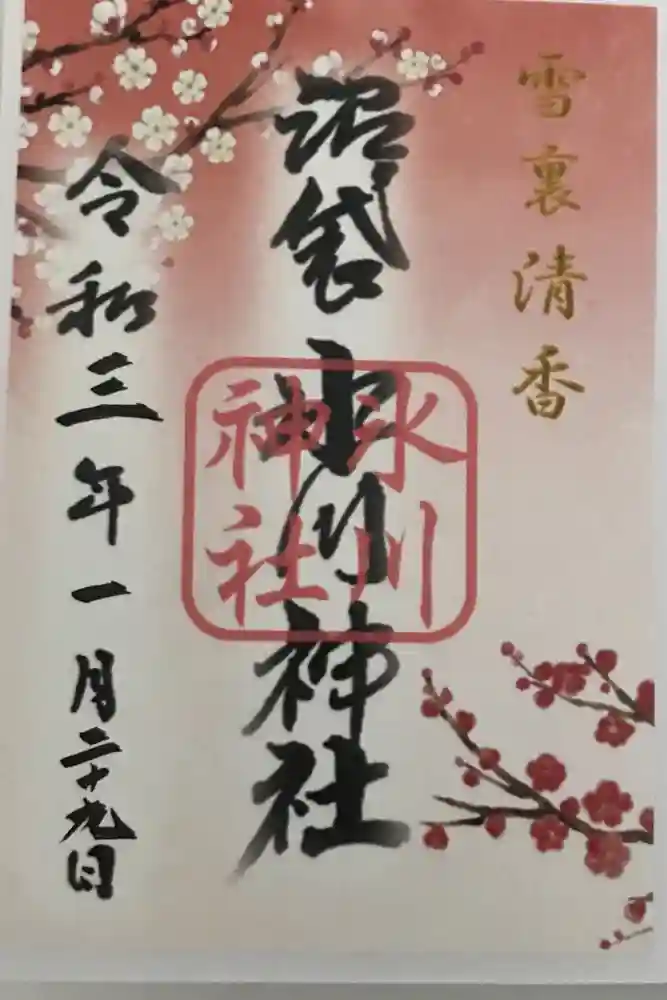 雪裏清香
沼袋氷川神社
氷川
神社
令和三年一月二十九日